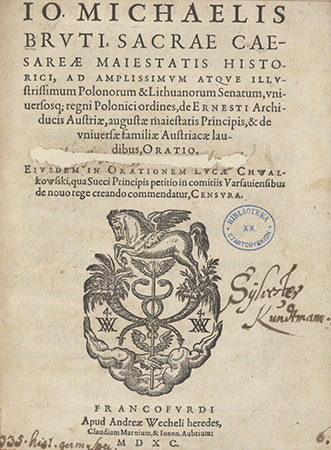 IO. MICHAELIS
BRVTI, SACRAE CAE-
SAREÆ MAIESTATIS HISTO-
RICI, AD AMPLISSIMVM ATQVE ILLV-
strissimum Polonorum & Lithuanorum Senatum, vni-
uersosq; regni Polonici ordines, de ERNESTI Archi-
ducis Austriæ, augustæ maiestatis Principis, & de
vniuersæ familiæ Austriacæ lau-
dibus, ORATIO.
EIVSDEM IN ORATIONEM LVCÆ CHWAL-
kowski, qua Sueci Principis petitio in comitiis Varsauiensibus
de nouo rege creando commendatur, CENSVRA.
BIBLIOTEKA
XX.
CZARTORYSKICH
Sylvester
Kundtmann.
FRANCOFVRDI
Apud Andreæ Wecheli heredes,
Claudium Marnium, & Ioann. Aubrium.
MDXC.
335. hist. germ.
6.